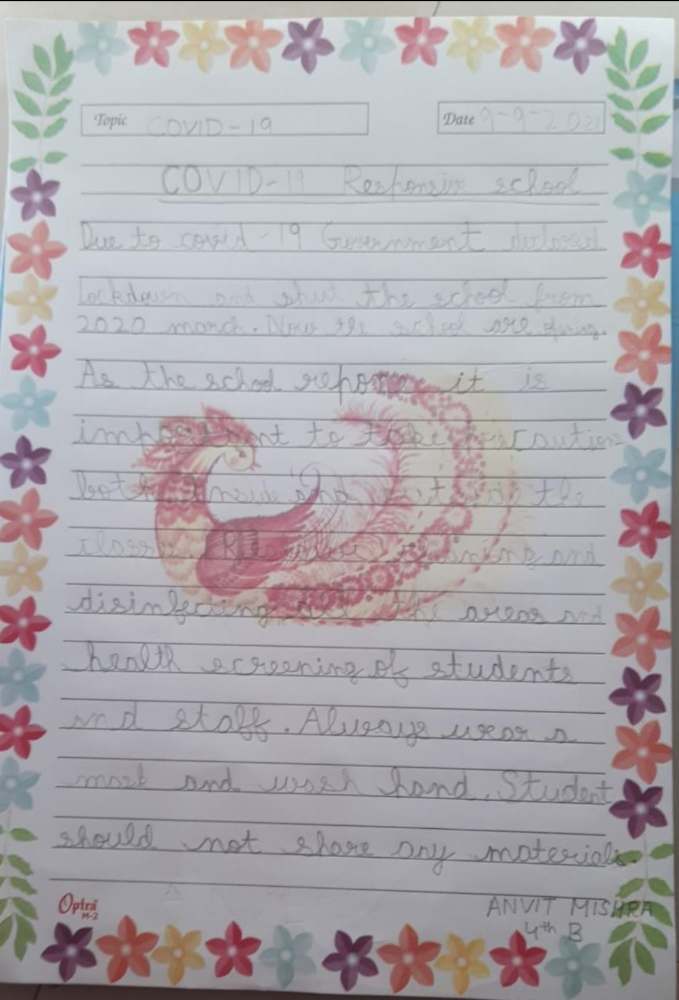 Topic COVID-19
Date 9-9-2021
COVID-19 Responsive school
Due to covid-19 Government declosed
lockdown and shut the school from
2020 march. Now the school are
As the school reponse it is
important to take precaution
both Inside and outside the
classes. Regular cleaning and
disinfecting all the areas and
health screening of students
and staff. Always wear a
mask and wash hand. Student
should not share any materials.
Optra
M-2
ANVIT MISHRA
4th B